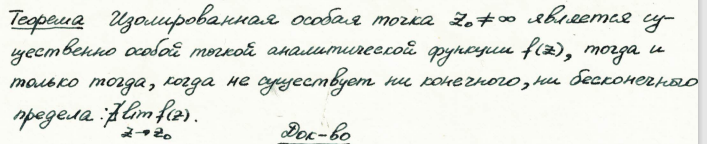 Теорема Изолированная особая точка z₀ ≠ ∞ является су-
щественно особой точкой аналитической функции f(z), тогда и
только тогда, когда не существует ни конечного, ни бесконечного
предела : ∄ lim f(z).
z→z₀
Док-во